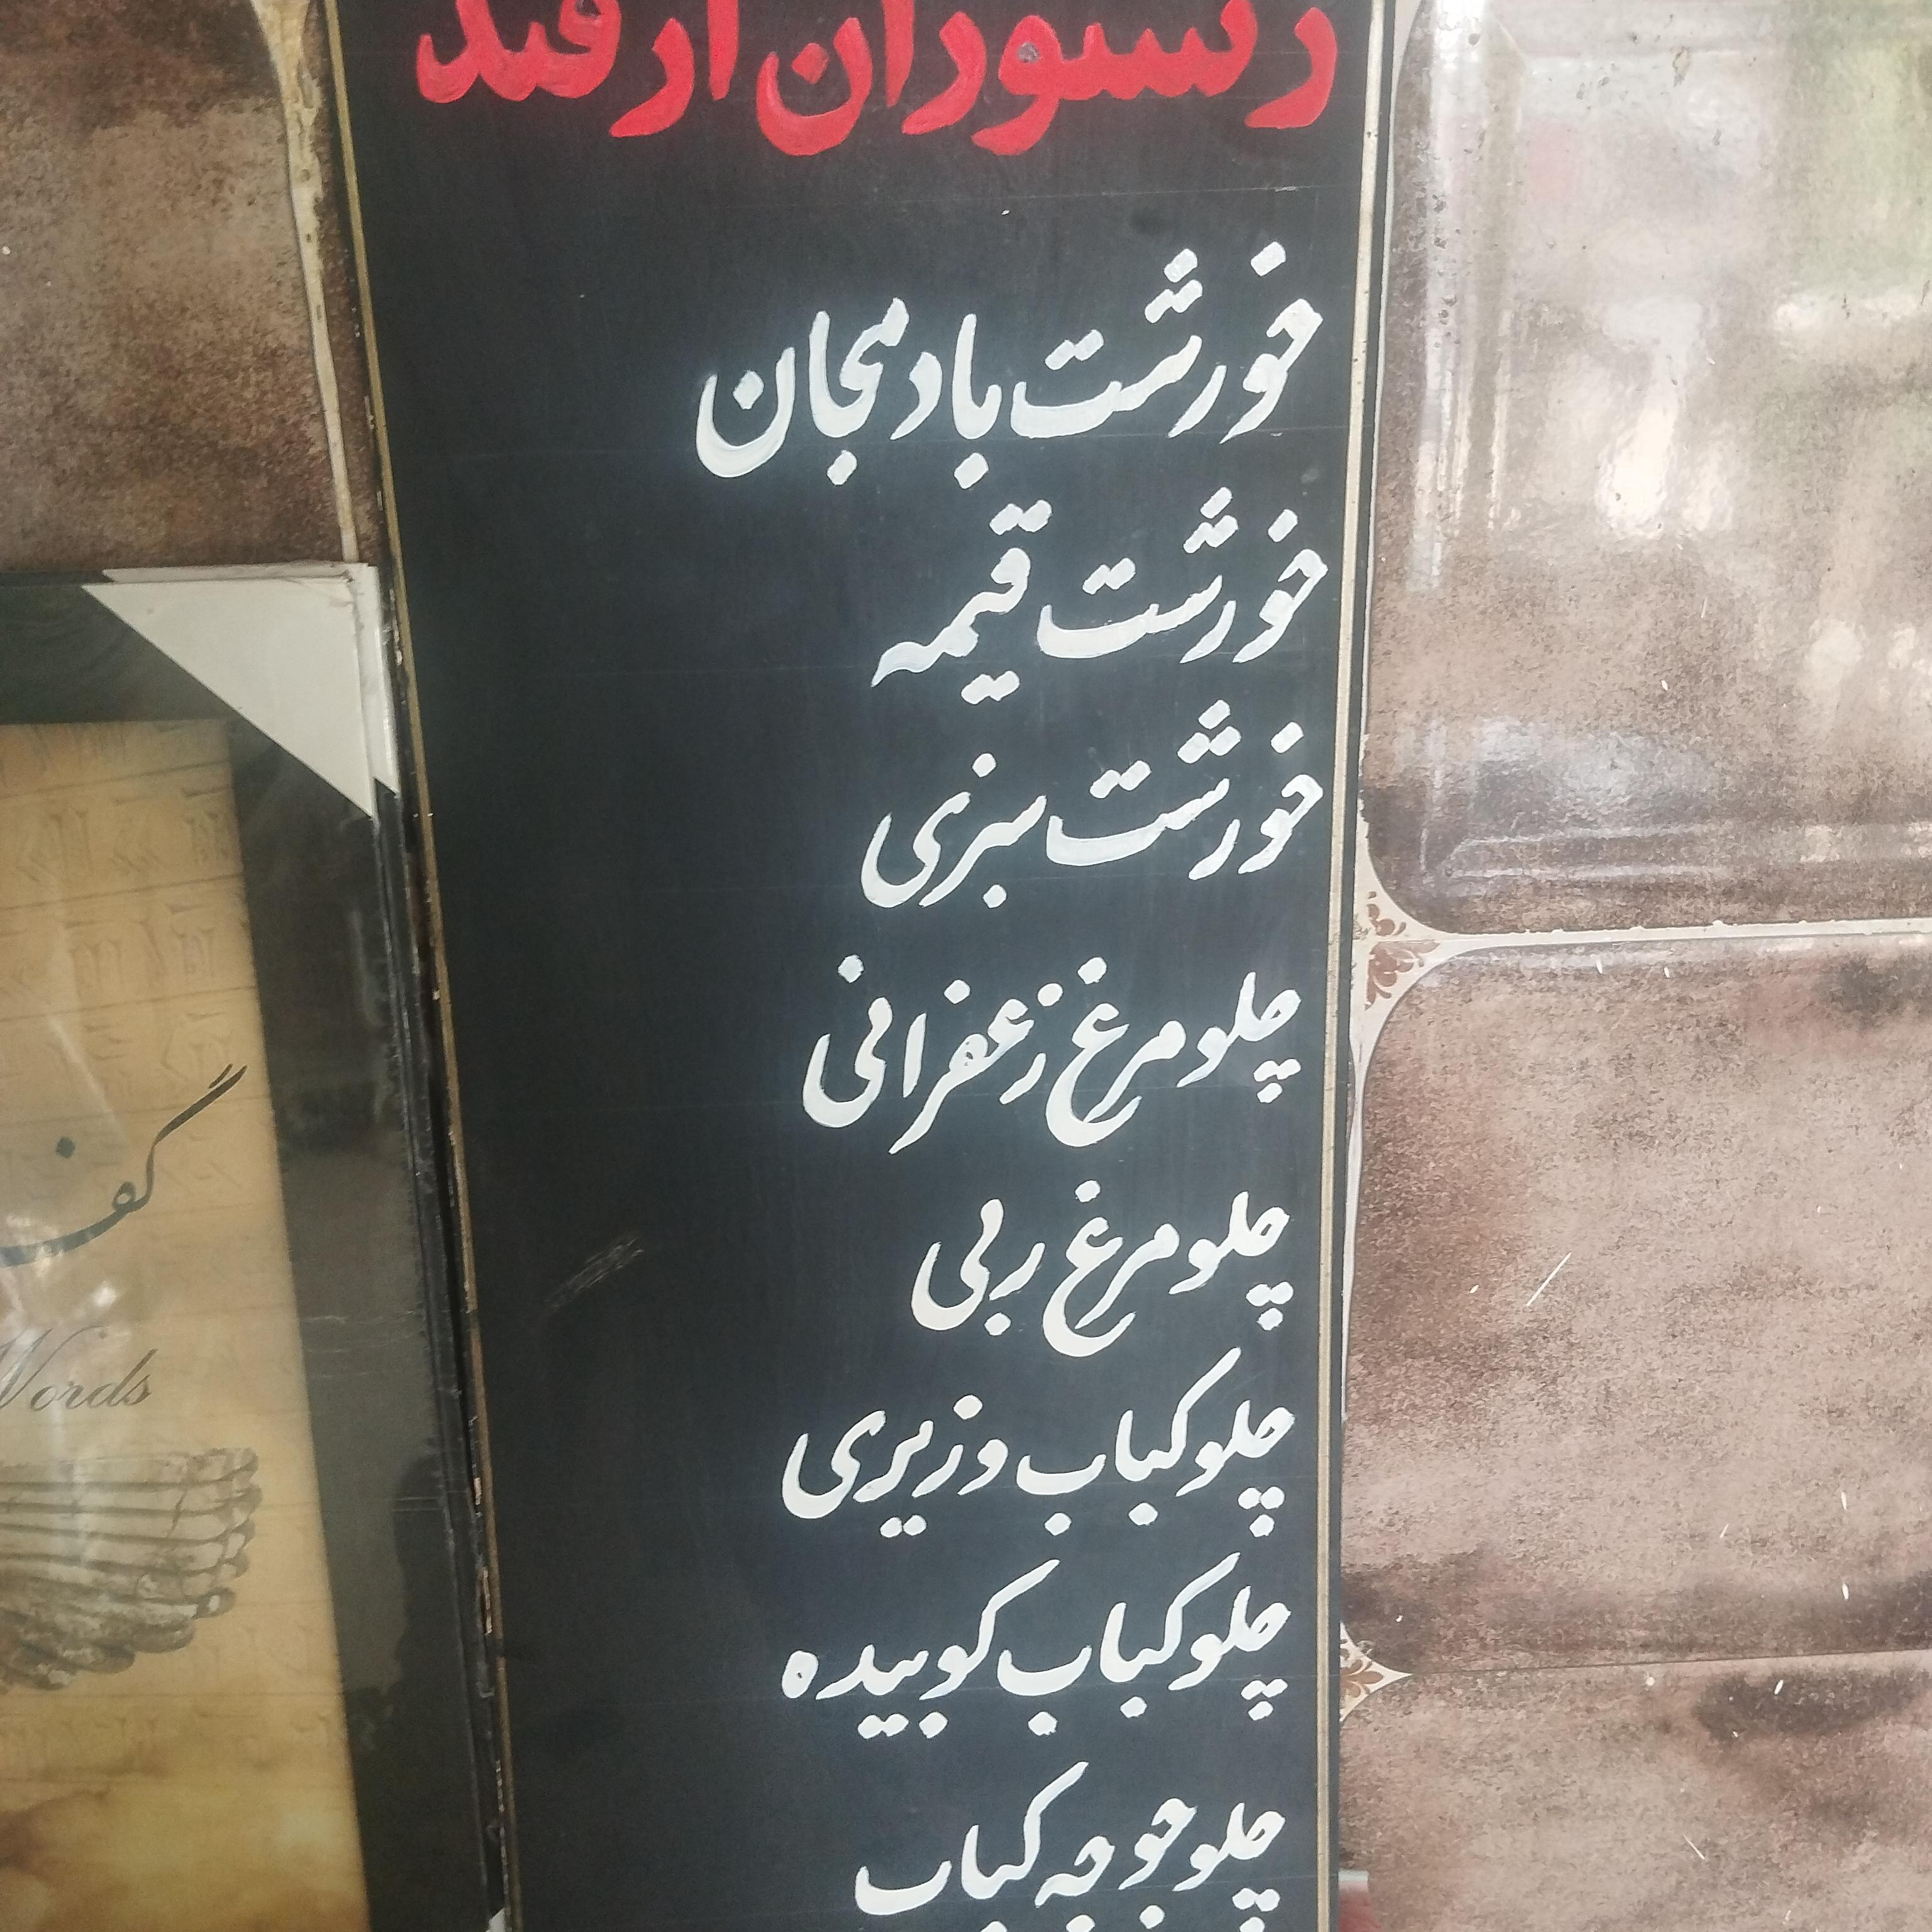 رستوران ارفند
خورشت بادمجان
خورشت قیمه
خورشت سبزی
چلو مرغ زعفرانی
چلو مرغ ربی
چلوکباب وزیری
چلوکباب کوبیده
چلو جوجه کباب
Words